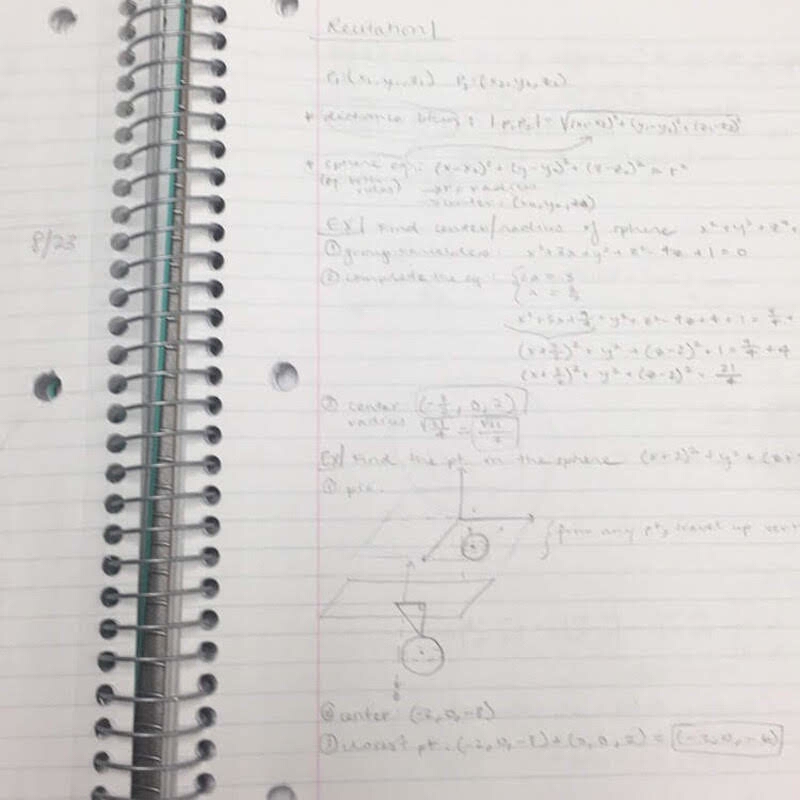 Recitation 1
P₁:(x₁,y₁,z₁) P₂:(x₂,y₂,z₂)
* distance btwn: |P₁P₂| = √(x₁-x₂)²+(y₁-y₂)²+(z₁-z₂)²
* sphere eq: (x-x₀)²+(y-y₀)²+(z-z₀)² = r²
r = radius
center: (x₀,y₀,z₀)
8/23
EX/ Find center/radius of sphere x²+y²+z²
① group variables: x²+3x+y²+z²-4z+1=0
② complete the sq: {2a = 3
x²+3x+9/4+y²+z²-4z+4+1=9/4+
(x+3/2)²+y²+(z-2)²+1=9/4+4
(x+3/2)²+y²+(z-2)²=21/4
③ center (-3/2, 0, 2)
radius √21/4 = √21/2
EX/ Find the pt. on the sphere (x+2)²+y²+(z+
① pic.
{from any pt, travel up
② center: (-2,0,-8)
③ closest pt. (-2,0,-8)+(0,0,2) = (-2,0,-6)